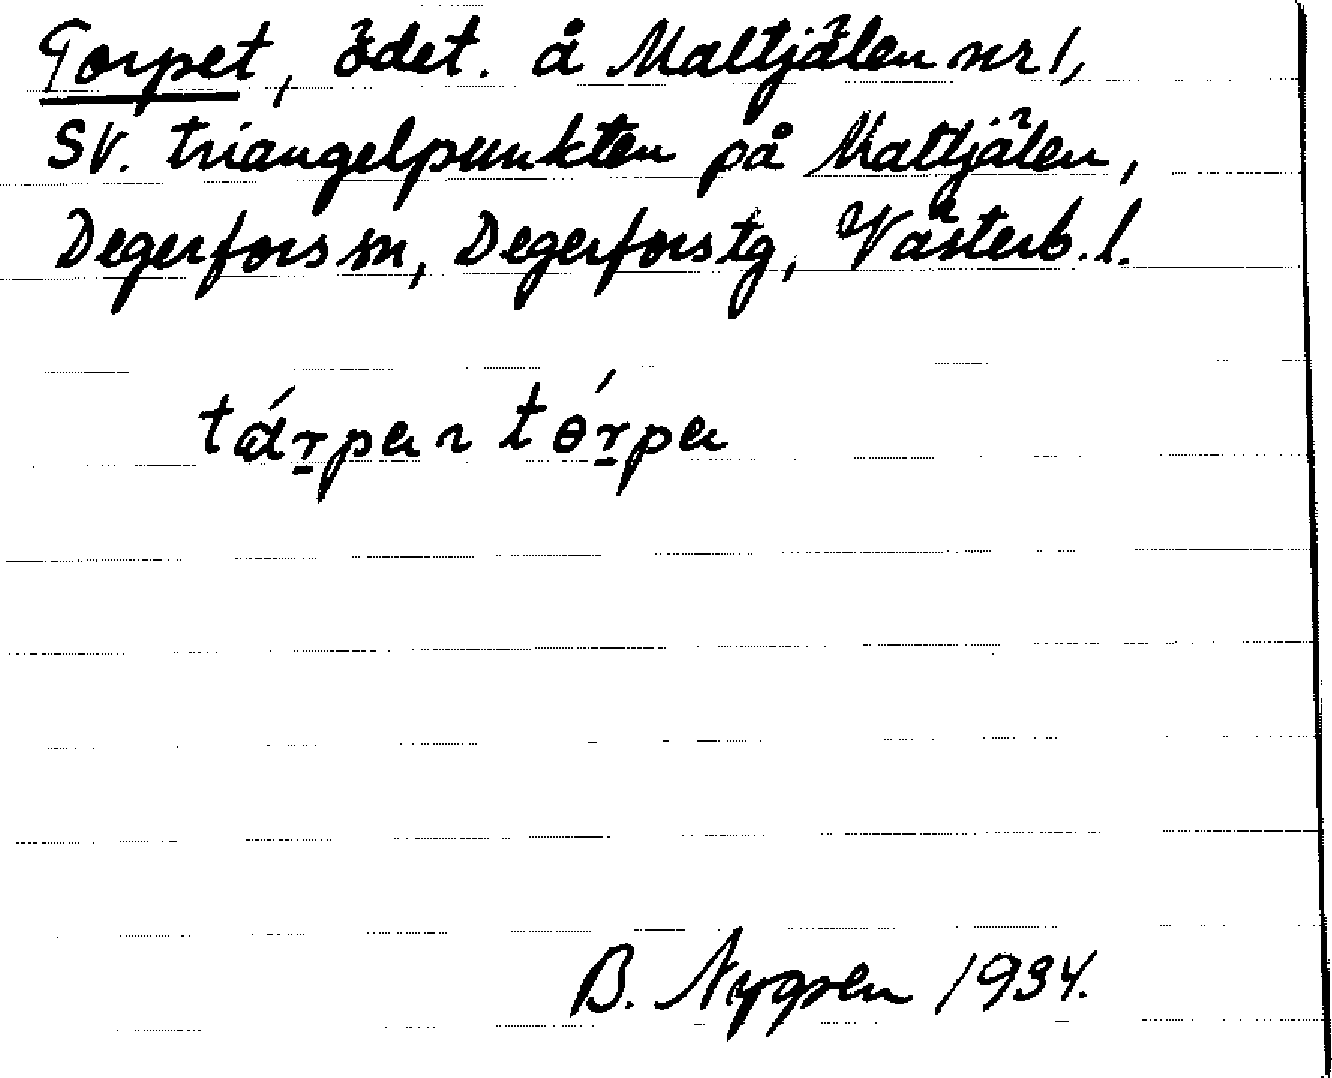 Torpet, ödet. å Maltjälen nr 1,
SV. triangelpunkten på Maltjälen,
Degerfors sn, Degerfors tg, Västerb. l.
tárpa ~ tɵ́rpa
B. Nygren 1934.